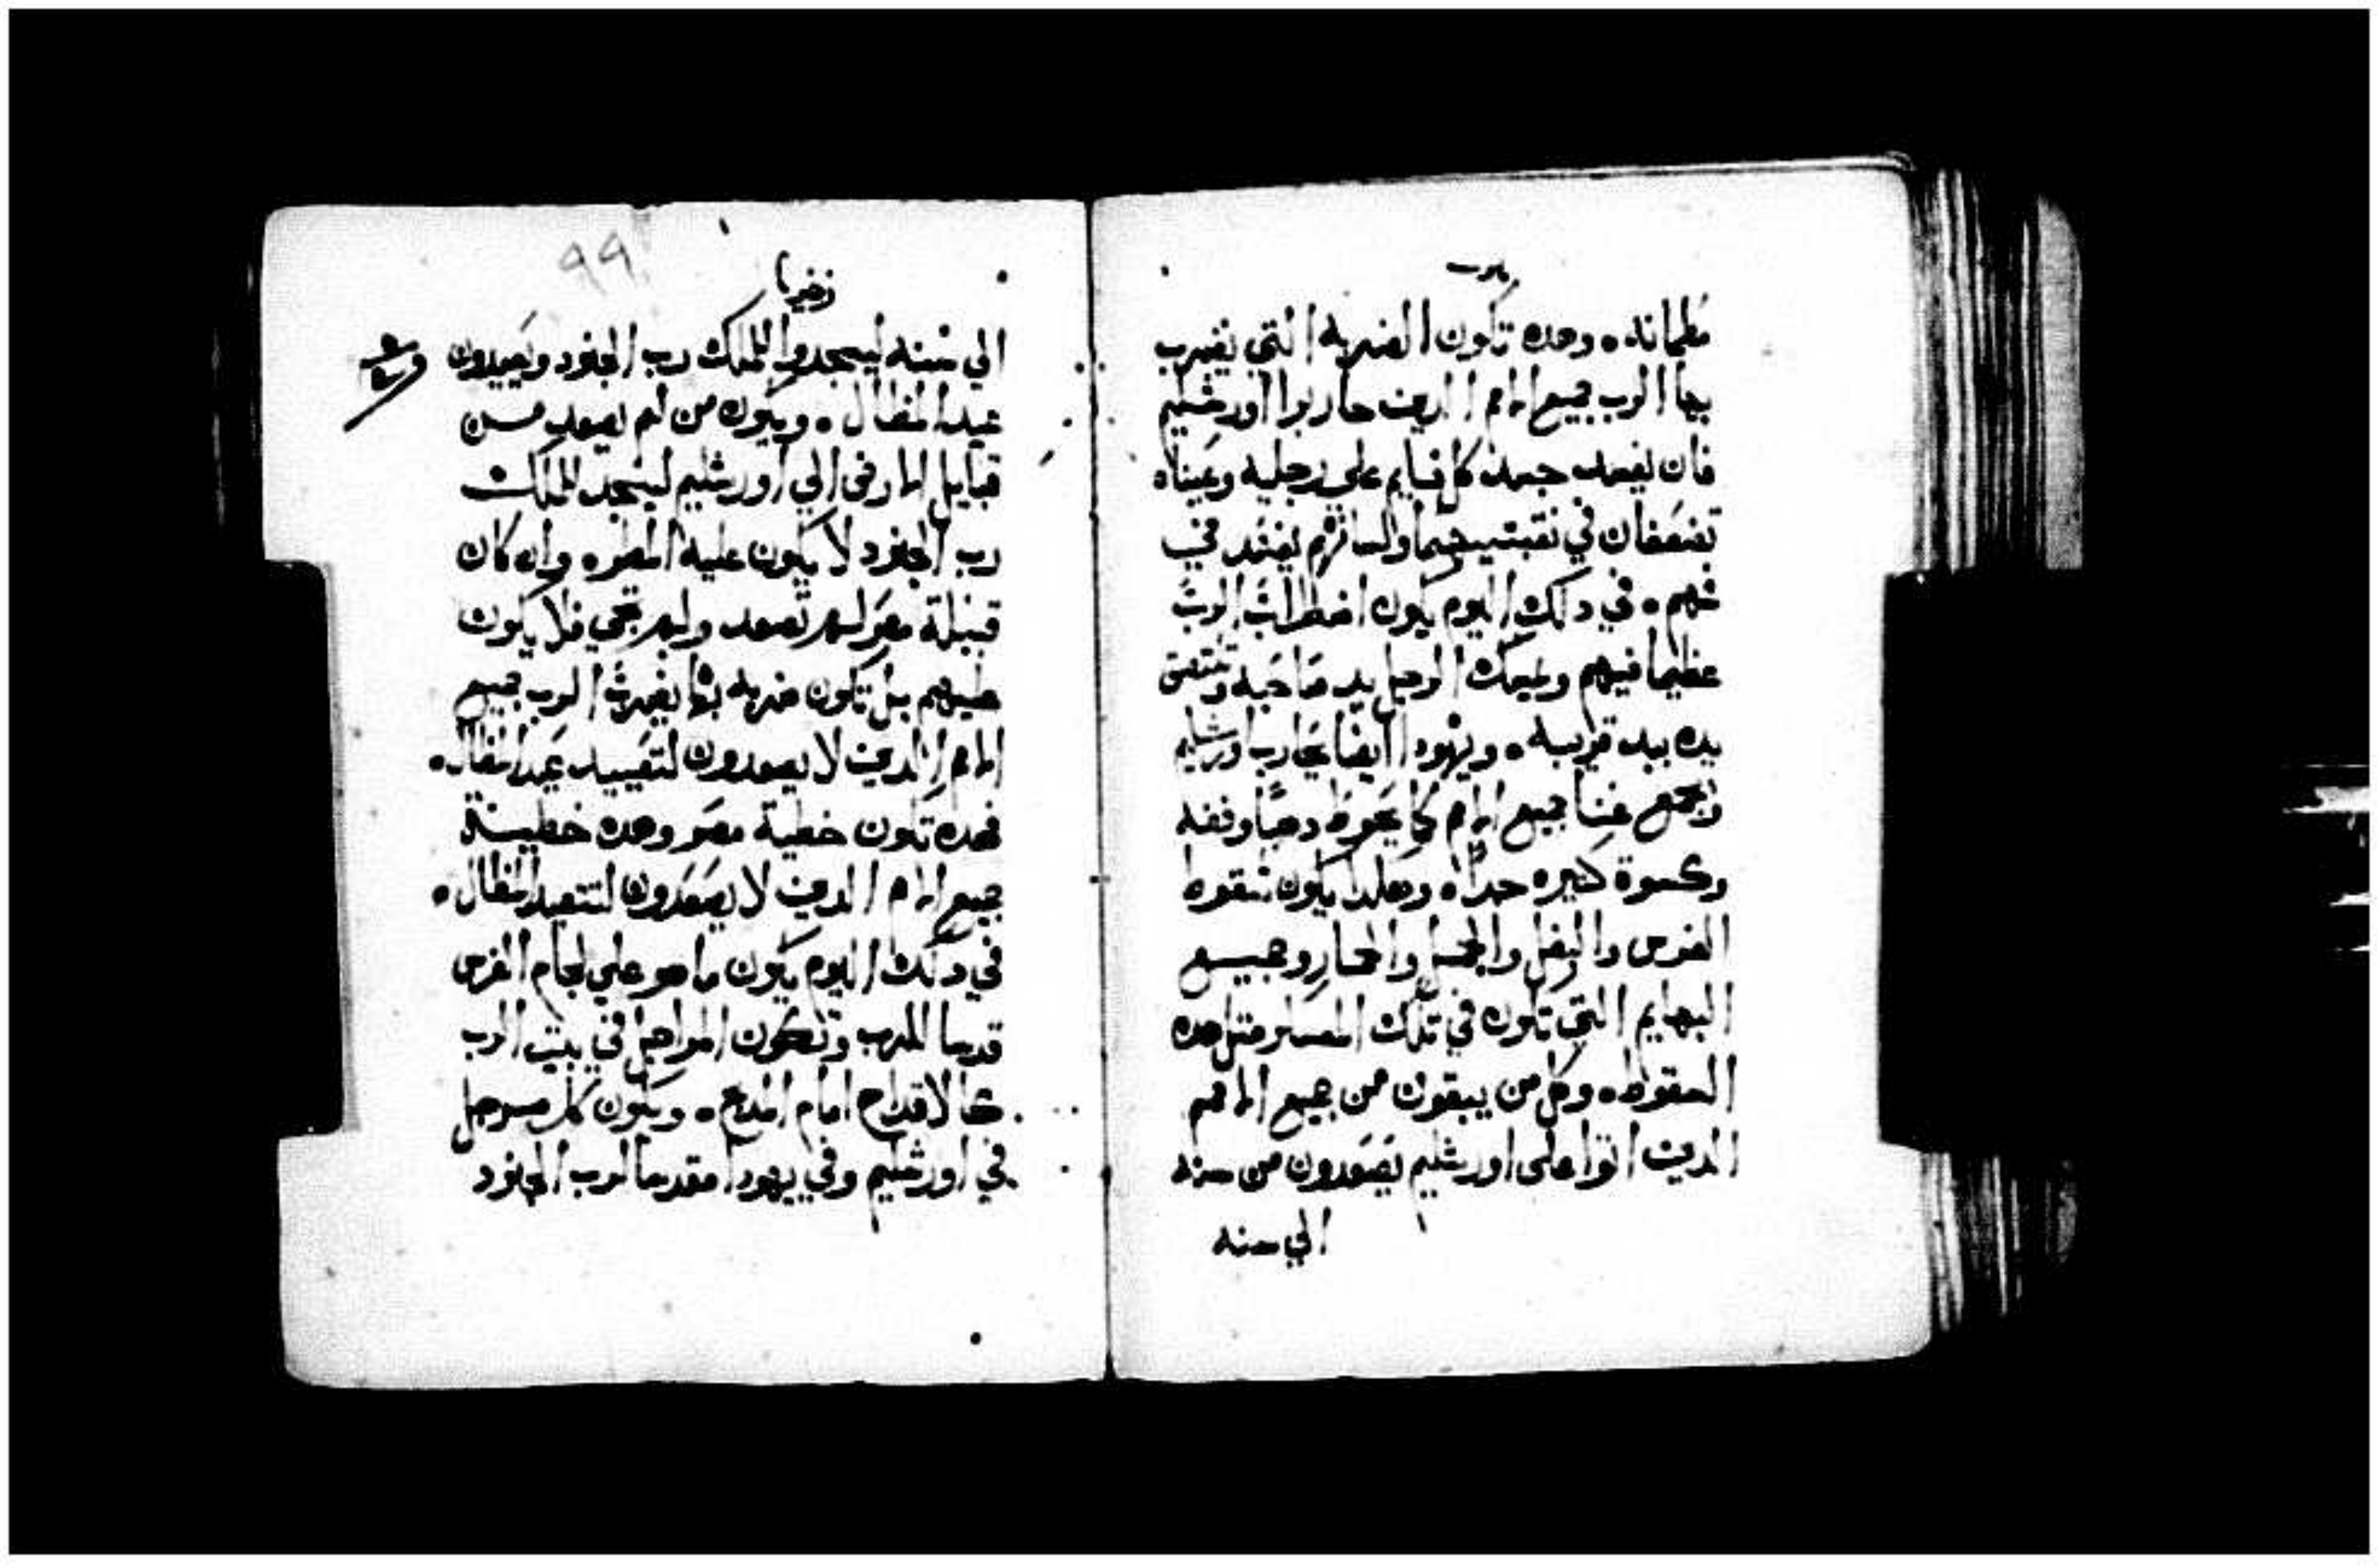 مطمانه ٠ وهده تكون الضربه التي يضرب
بها الرب جميع الامم الدين حاربوا اورشليم
فان لفيمد جسد كل قيام علي رجليه وعيناه
تضعفان في نقبتيهما ولسانهم يفسد في
فهم ٠ في دلك اليوم يكون اضطراب الرب
عظيما فيهم ويمسك الرجل يد صاحبه وتنتصق
يده بيد قريبه ٠ ويهودا ايضا يحارب اورشليم
وتجمع غنا جميع الامم كما يحوط دهبا وفضه
وكسوة كثيره جدا ٠ وهكدا يكون سقوط
الفرس والبغل والجمل والحمار وجميع
البهايم التي تكون في تلك العساكر مثل هده
السقوط ٠ وكل من يبقون من جميع الامم
الدين اتوا على اورشليم يصعدون من سنه
الي سنه
زخريا
٩٩
الي سنه ليسجدوا للملك رب الجنود ويعيدون
عيد المظال ٠ ويكون من لم يصعد من
قبايل الارض الي اورشليم ليسجد للملك
رب الجنود لا يكون عليه المطر ٠ وان كان
قبيلة مصر لم تصعد ولم تجي فلا يكون
عليهم بل تكون ضربه بها يضرب الرب جميع
الامم الدين لا يصعدون لتعييد عيد المظال ٠
فهده تكون خطية مصر وهده خطيئة
جميع الامم الدين لا يصعدون لتعيد المظال ٠
في دلك اليوم يكون ما هو علي لجام الفرس
قدسا للرب وتكون المراجل في بيت الرب
كالاقداح امام المدبح ٠ ويكون كل مرجل
في اورشليم وفي يهودا مقدسا لرب الجنود